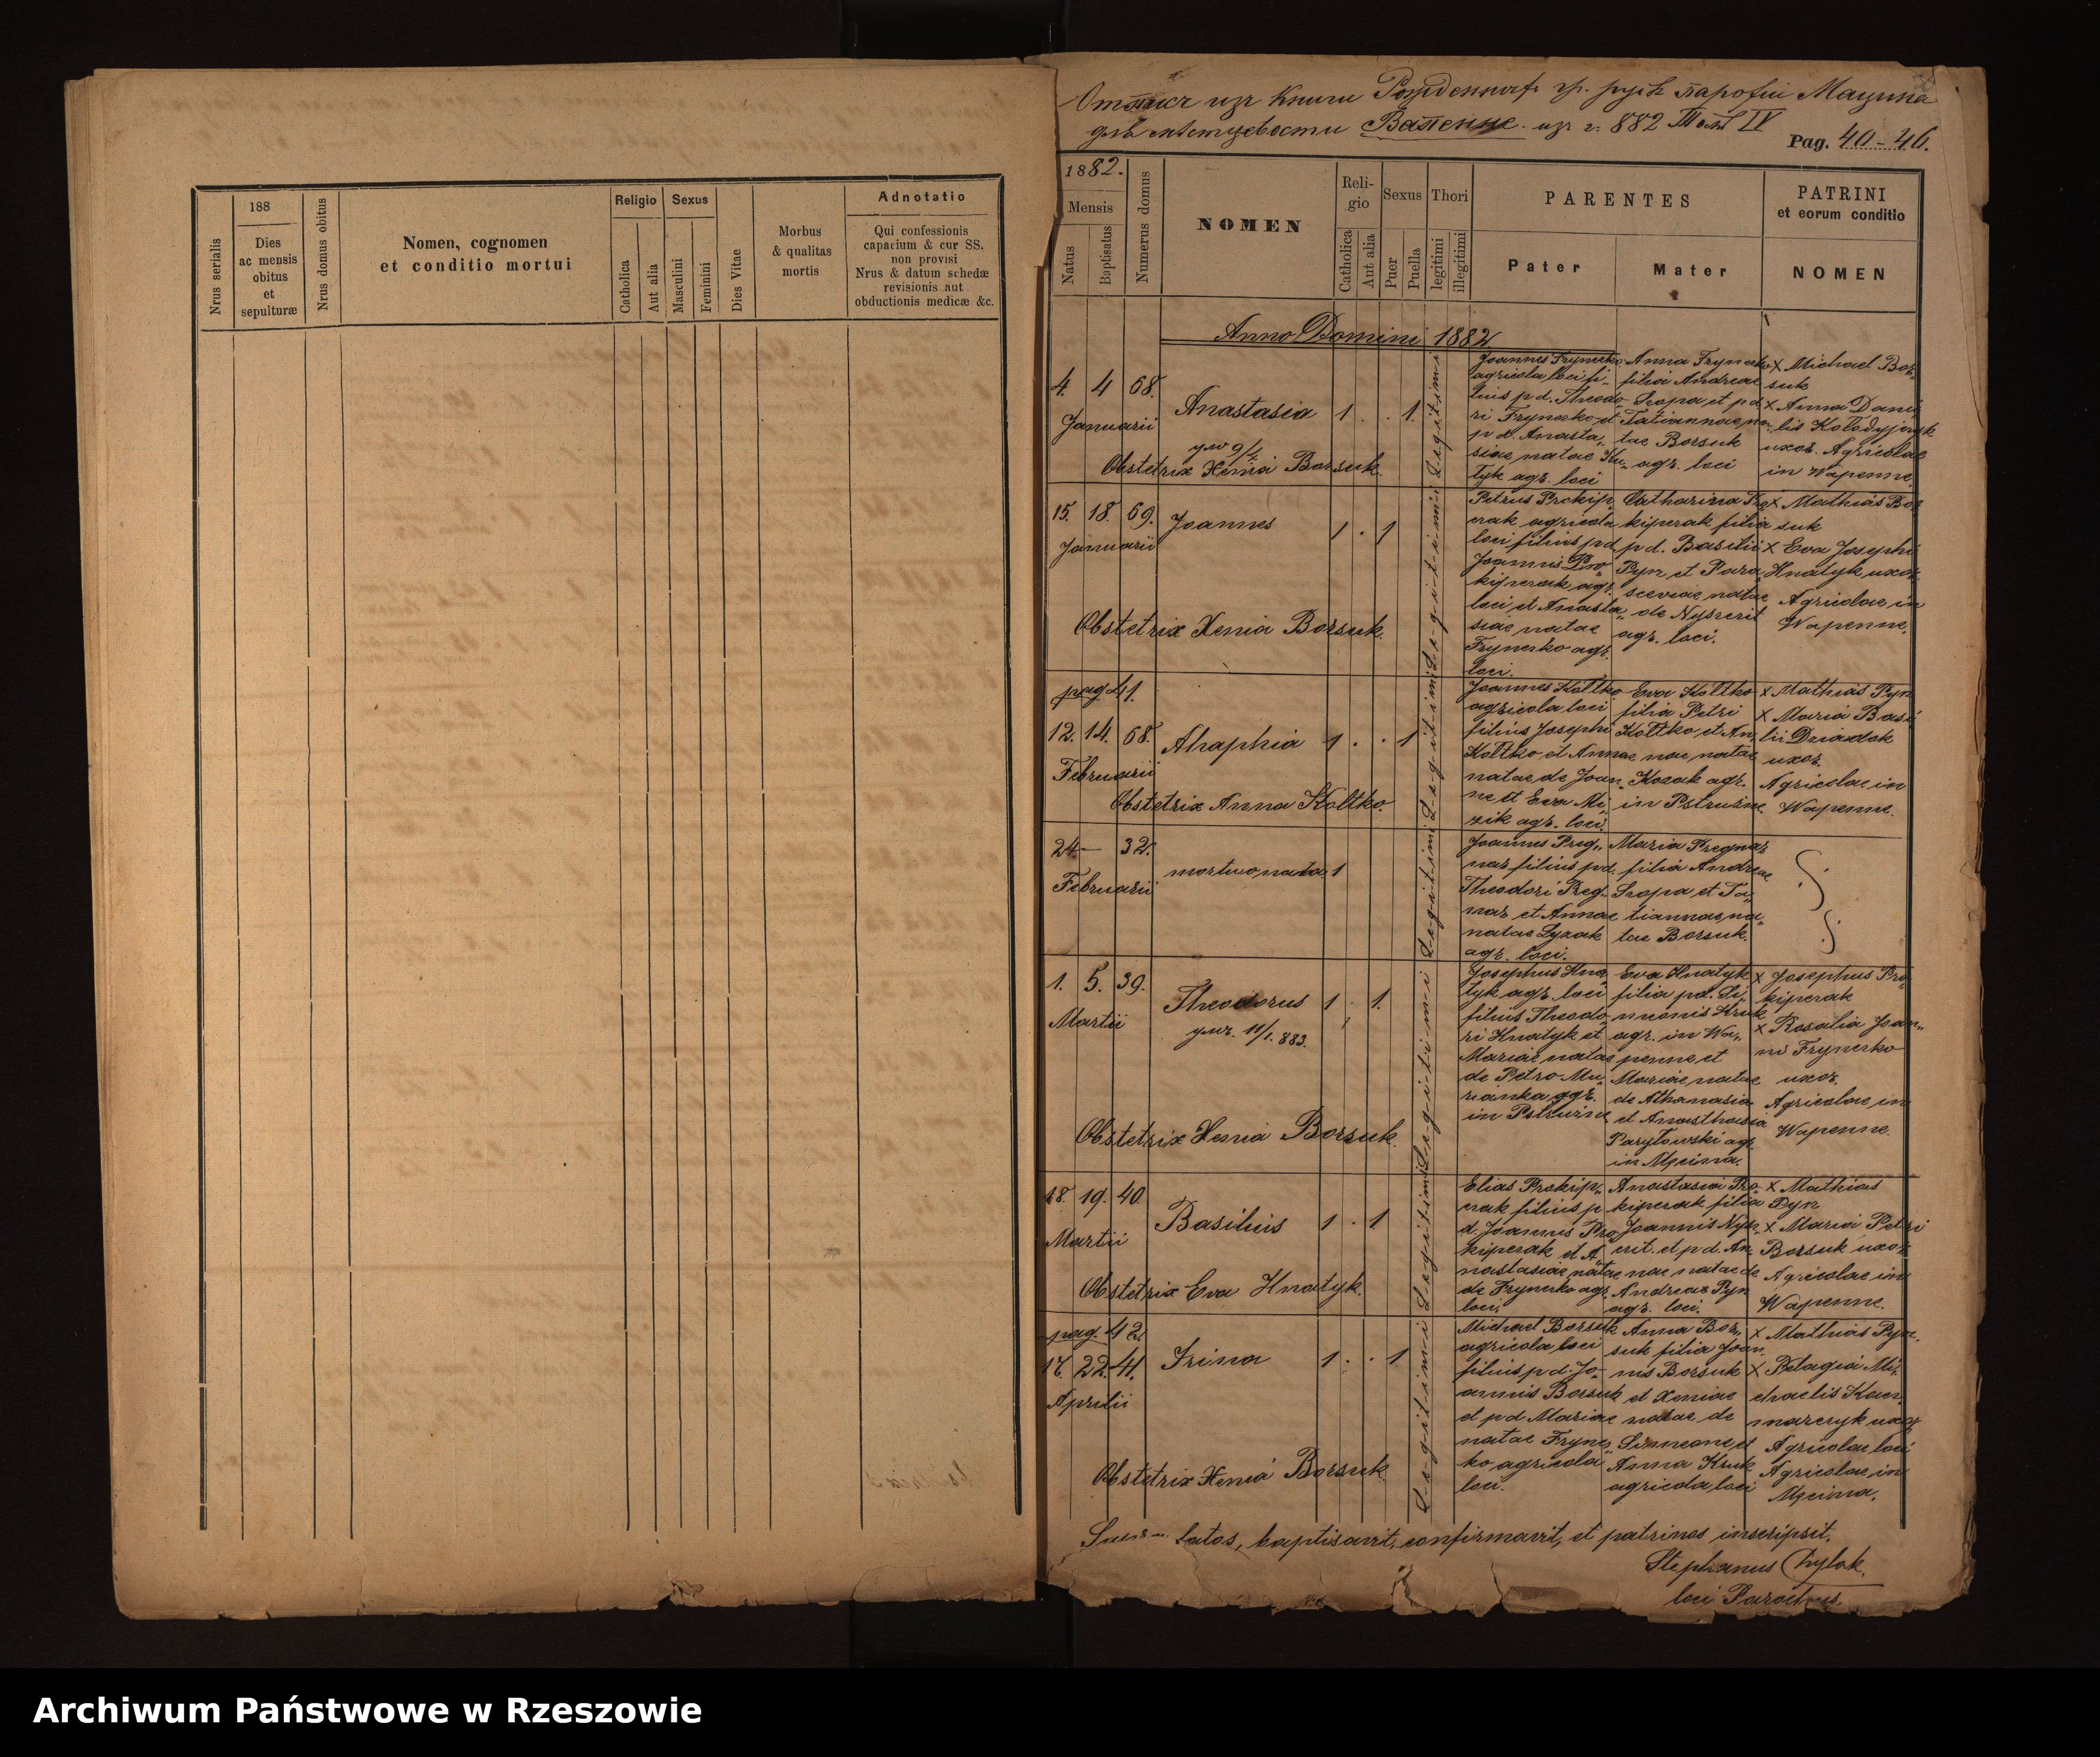 188
Nrus serialis
Dies
ac mensis
obitus
et
sepulturæ
Nrus domus obitus
Nomen, cognomen
et conditio mortui
Religio
Catholica
Aut alia
Sexus
Masculini
Feminini
Dies Vitae
Morbus
& qualitas
mortis
Adnotatio
Qui confessionis
capacium & cur SS.
non provisi
Nrus & datum schedæ
revisionis aut
obductionis medicæ &c.
изъ Книги парофіи Мацина
Вапенне изъ 882 IV
Pag. 40-46.
1882.
Mensis
Natus
Baptisatus
Numerus domus
NOMEN
Reli-
gio
Catholica
Aut alia
Sexus
Puer
Puella
Thori
legitimi
illegitimi
PARENTES
Pater
Mater
PATRINI
et eorum conditio
NOMEN
Anno Domini 1882
4. 4 68.
Januarii
Anastasia 1 . . 1.
Obstetrix Xenia Borsuk.
Legitimi
Joannes Frynczko
agricola loci fi„
lius p d. Theodo„
ri Frynczko et
p d. Anasta„
siae natae Hn„
tyk agr. loci
Anna Frynczko
filia Andreae
Sropa et p d
Tatiannae na„
tae Borsuk
agr. loci
x Michael Bor„
suk
x Anna Dani„
lis Kolodyjczyk
uxor. Agricolae
in Wapenne.
15. 18. 69.
Januarii
Joannes 1 . 1
Obstetrix Xenia Borsuk.
Legitimi
Petrus Prokip„
czak agricola
loci filius pd
Joannis Pro„
kipczak agr.
loci et Anasta„
siae natae
Frynczko agr.
loci.
Catharina Pro„
kipczak filia
p d. Basilii
Pyrz et Para„
sceviae natae
agr. loci.
x Mathias Bor„
suk
x Eva Josephi
Hnatyk uxor.
Agricolae in
Wapenne.
pag 41.
12. 14. 68.
Februarii
Ahaphia 1 . . 1
Obstetrix Anna Koltko.
Legitimi
Joannes Koltko
agricola loci
filius Josephi
Koltko et Annae
natae de Joan„
ne et Eva Mi„
zik agr. loci.
Eva Koltko
filia Petri
Koltko et An„
nae natae
Kozak agr.
in Pstrużne.
x Mathias Pyrz
x Maria Basi„
lii Dziadok
uxor.
Agricolae in
Wapenne.
24. — 32.
Februarii
mortuo nata 1
Legitimi
Joannes Preg„
nar filius pd.
Theodori Preg„
nar et Annae
natae Lyzak
agr. loci.
Maria Pregnar
filia Andreae
Sropa et Ta„
tiannae na„
tae Borsuk.
1. 5. 39.
Martii
Theodorus 1 . 1.
ум. 11/1. 883.
Obstetrix Xenia Borsuk.
Legitimi
Josephus Hna„
tyk agr. loci
filius Theodo„
ri Hnatyk et
Mariae natae
de Petro Mu„
rianka agr.
in Pstrużne
Eva Hnatyk
filia pd. Si„
meonis Hruk
agr. in Wa„
penne et
Mariae natae
de Athanasia
et Anasthasia
Parylowski agr.
in Męcina.
x Josephus Pro„
kipczak
x Rosalia Joan„
ni Frynczko
uxor.
Agricolae in
Wapenne.
18. 19. 40
Martii
Basilius 1 . 1
Obstetrix Eva Hnatyk.
Legitimi
Elias Prokip„
czak filius p
d. Joannis Pro„
kipczak et A„
nastasiae natae
de Frynczko agr.
loci.
Anastasia Pro„
kipczak filia
et p d. An„
nae natae de
Andreas Pyrz
agr. loci.
x Mathias
Pyrz
x Maria Petri
Borsuk uxor
Agricolae in
Wapenne.
pag. 42.
17. 22. 41.
Aprilii
Irina 1 . . 1
Obstetrix Xenia Borsuk
Legitimi
Michael Borsuk
agricola loci
filius p d. Jo„
annis Borsuk
et p d Mariae
natae Fryncz„
ko agricola
loci.
Anna Bor„
suk filia Joan„
nis Borsuk
et Xeniae
natae de
Simeone et
Anna Hruk
agricola loci
x Mathias Pyrz.
x Pelagia Mi„
chaelis Kacz„
marczyk uxor
Agricolae loci
Agricolae in
Męcina.
latos, baptisavit, confirmavit, et patrinos inscripsit.
Stephanus Chylak.
loci Parochus.
Archiwum Państwowe w Rzeszowie